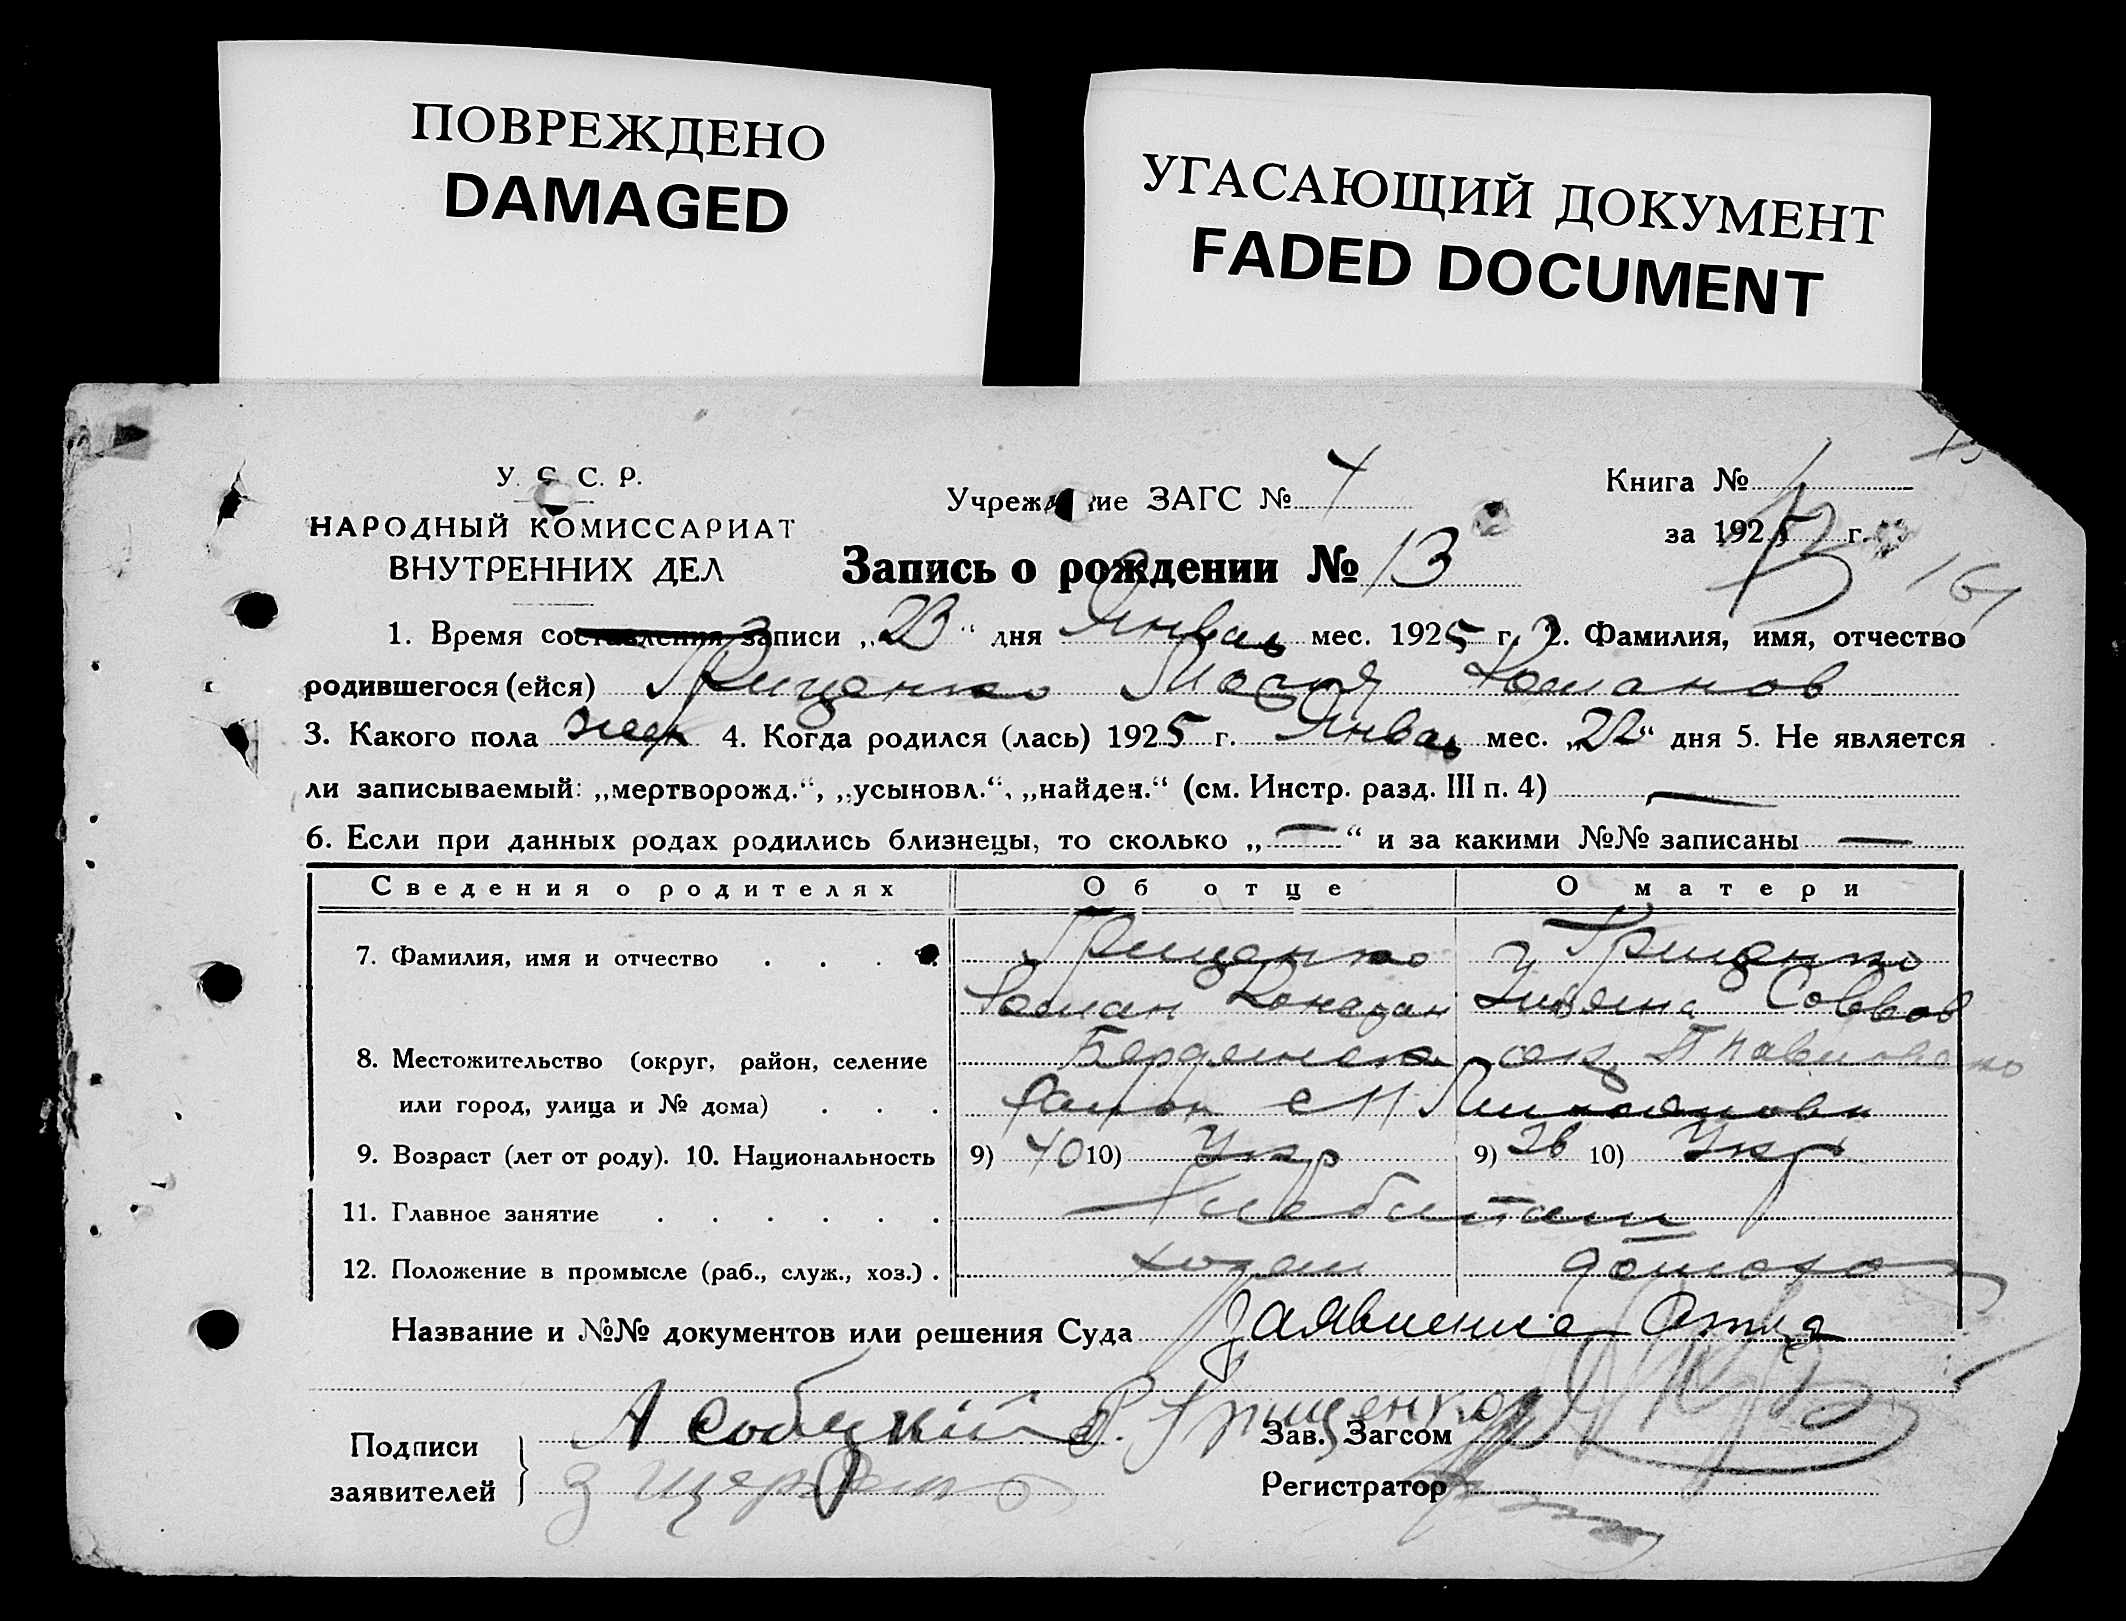 ПОВРЕЖДЕНО
DAMAGED
УГАСАЮЩИЙ ДОКУМЕНТ
FADED DOCUMENT
У. С. С. Р.
НАРОДНЫЙ КОМИССАРИАТ
ВНУТРЕННИХ ДЕЛ
Учреж ие ЗАГС № 4
Книга № 1
за 1925 г.
Запись о рождении № 13
1. Время составления записи „23“ дня Январь мес. 1925 г. 2. Фамилия, имя, отчество
родившегося (ейся) Грищенко Мария Романов
3. Какого пола жен 4. Когда родился (лась) 1925 г. Январь мес. „22“ дня 5. Не является
ли записываемый: „мертворожд.“, „усыновл.“, „найден.“ (см. Инстр. разд. III п. 4) —
6. Если при данных родах родились близнецы, то сколько „—“ и за какими №№ записаны —
Сведения о родителях Об отце О матери
7. Фамилия, имя и отчество . . . . Грищенко Грищенко
Роман Савов
8. Местожительство (округ, район, селение
или город, улица и № дома) . . . район с
9. Возраст (лет от роду). 10. Национальность 9) 40 10) Укр 9) 26 10) Укр
11. Главное занятие . . . . . . Хлебопаш
12. Положение в промысле (раб., служ., хоз.) . хозяин домохоз
Название и №№ документов или решения Суда Заявление Отца
Подписи
заявителей
А Собуцкий Р. Грищенко
Зав. Загсом
Регистратор